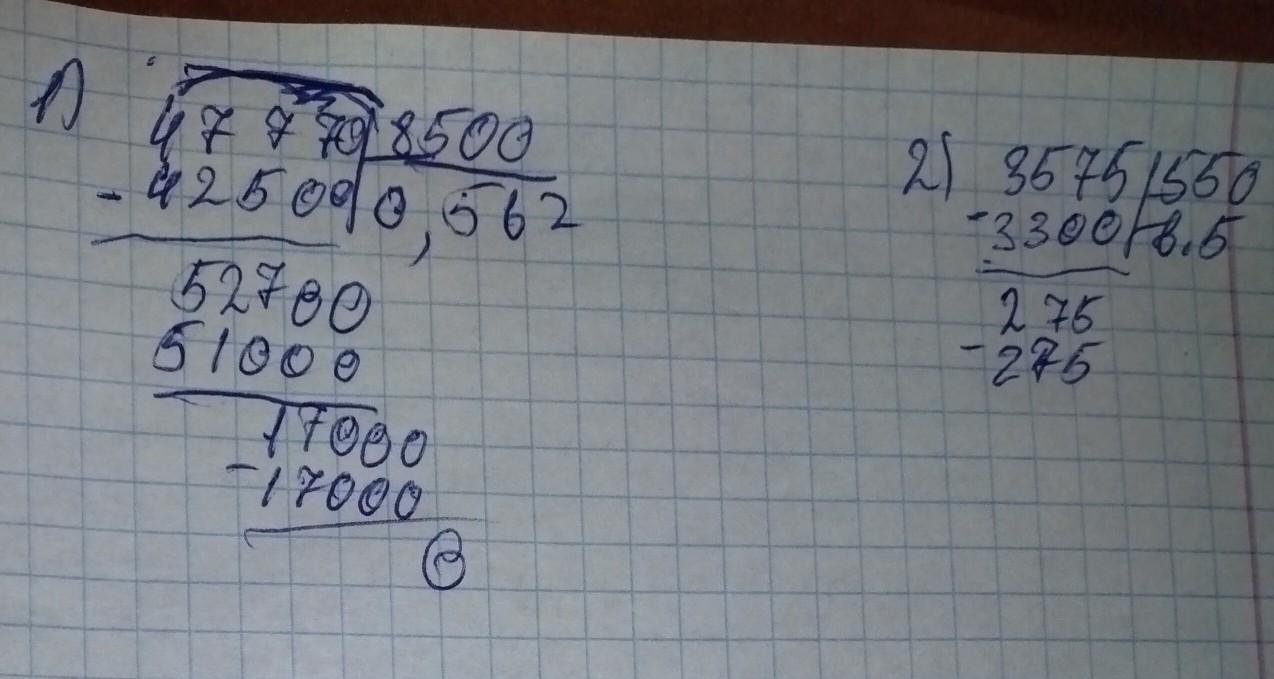 1)
47770 8500
- 42500 0,562
52700
51000
17000
- 17000
0
2) 3575 550
- 3300 6.5
275
- 275